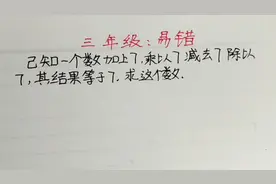 三年级:易错
己知一个数加上7.乘以7减去7除以
7,其结果等于7.求这个数.